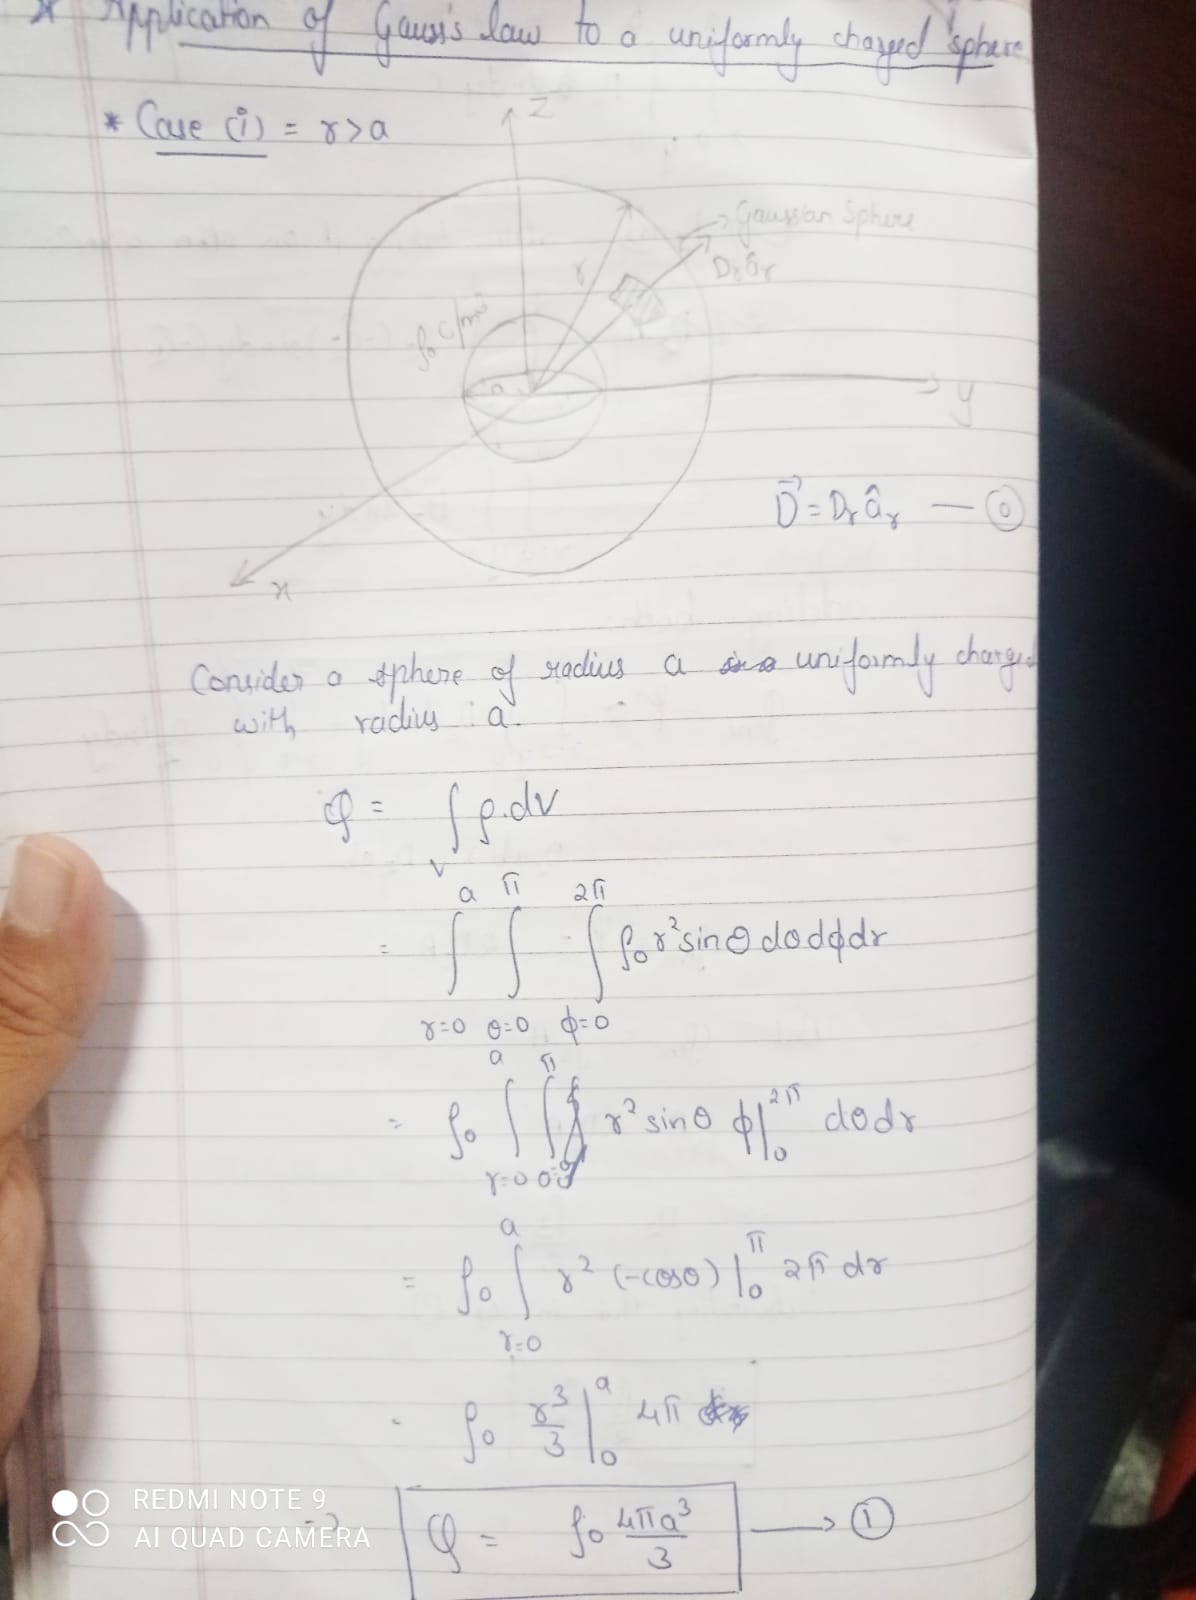 * Application of Gauss's law to a uniformly charged sphere
* Case (i) = r>a
Z
Gaussian Sphere
D_r â_r
r
ρ₀ C/m³
a
y
x
D⃗ = D_r â_r — ⓪
Consider a sphere of radius a uniformly charged
with radius 'a'.
φ = ∫_v ρ.dv
= ∫_{r=0}^{a} ∫_{θ=0}^{π} ∫_{φ=0}^{2π} ρ₀ r² sinθ dθ dφ dr
= ρ₀ ∫_{r=0}^{a} ∫_{θ=0}^{π} r² sinθ φ|₀^{2π} dθ dr
= ρ₀ ∫_{r=0}^{a} r² (-cosθ)|₀^{π} 2π dr
ρ₀ r³/3 |₀^{a} 4π
⇒ φ = ρ₀ 4πa³/3 → ①
REDMI NOTE 9
AI QUAD CAMERA